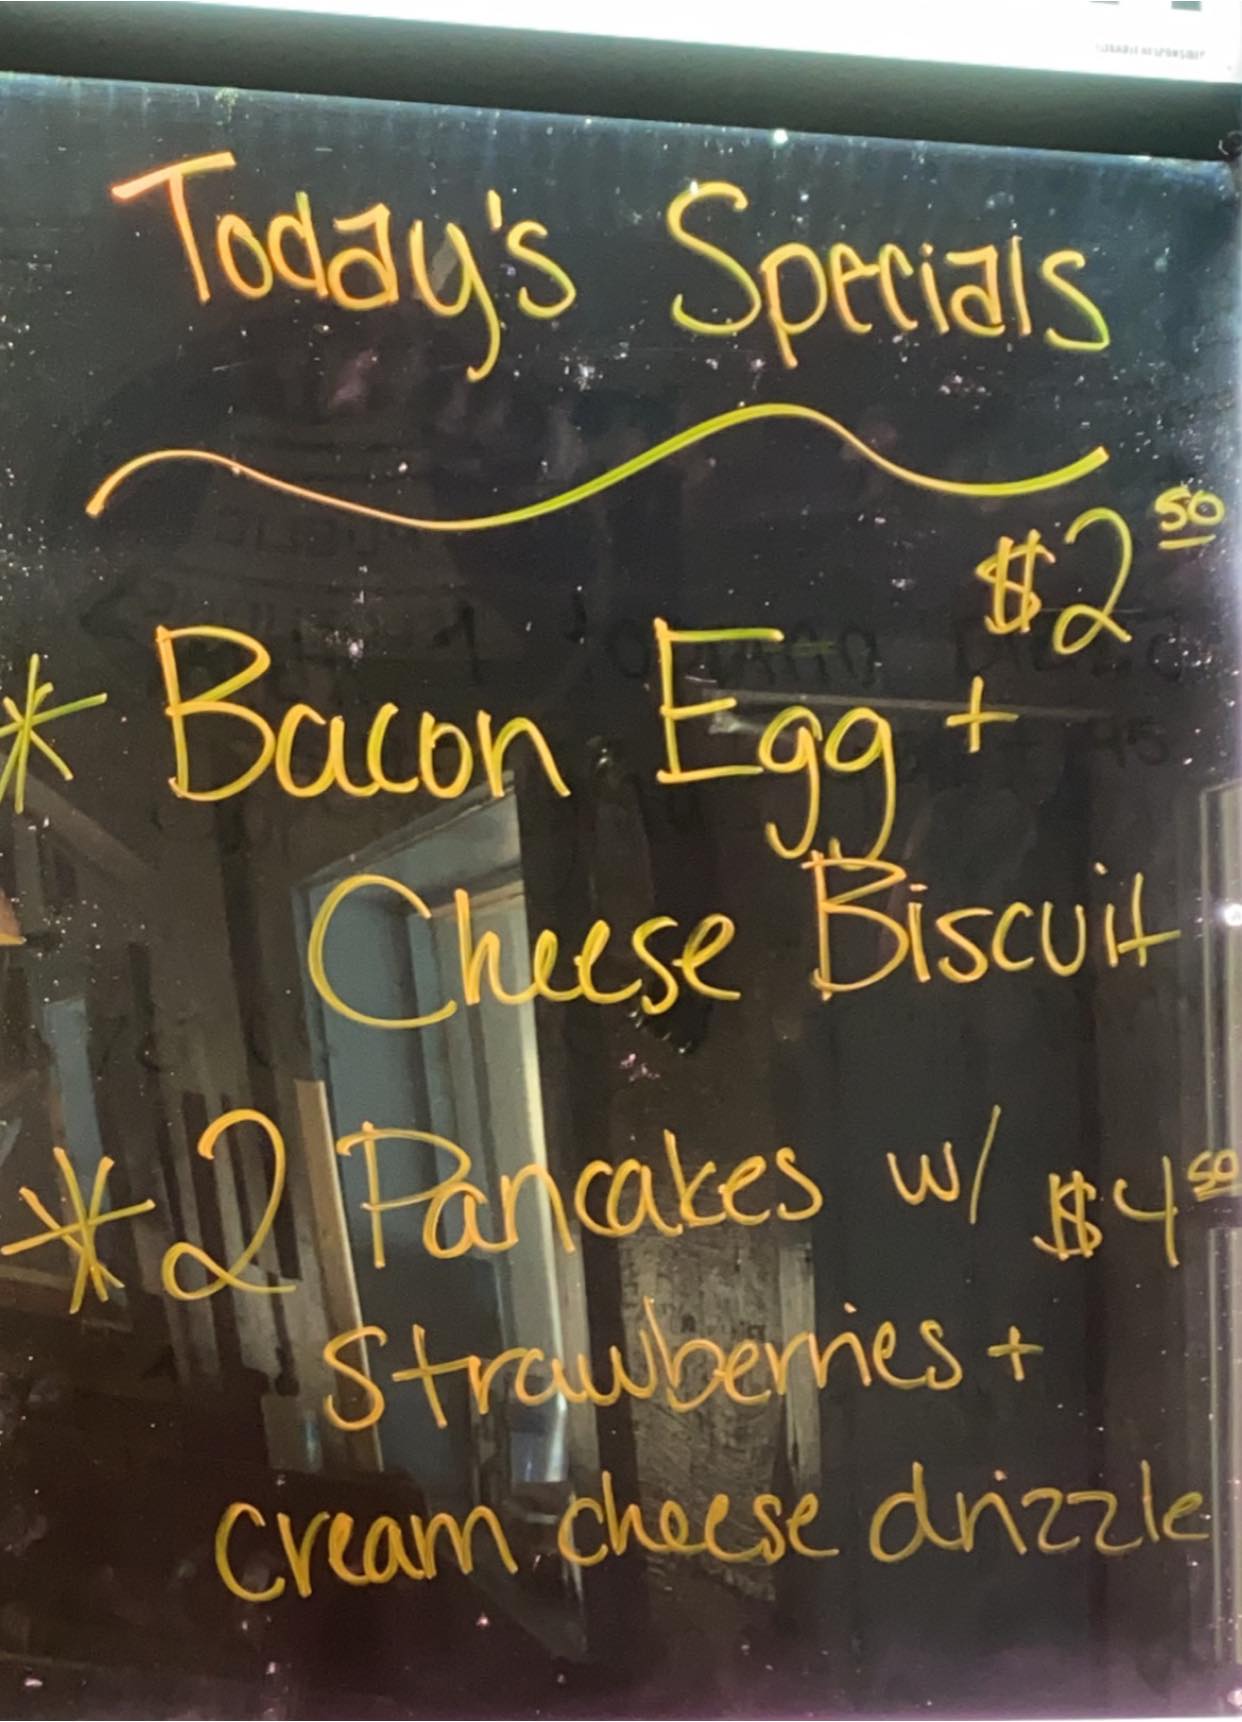 Today's Specials
$2 50
* Bacon Egg +
Cheese Biscuit
* 2 Pancakes w/ $4 50
Strawberries +
cream cheese drizzle